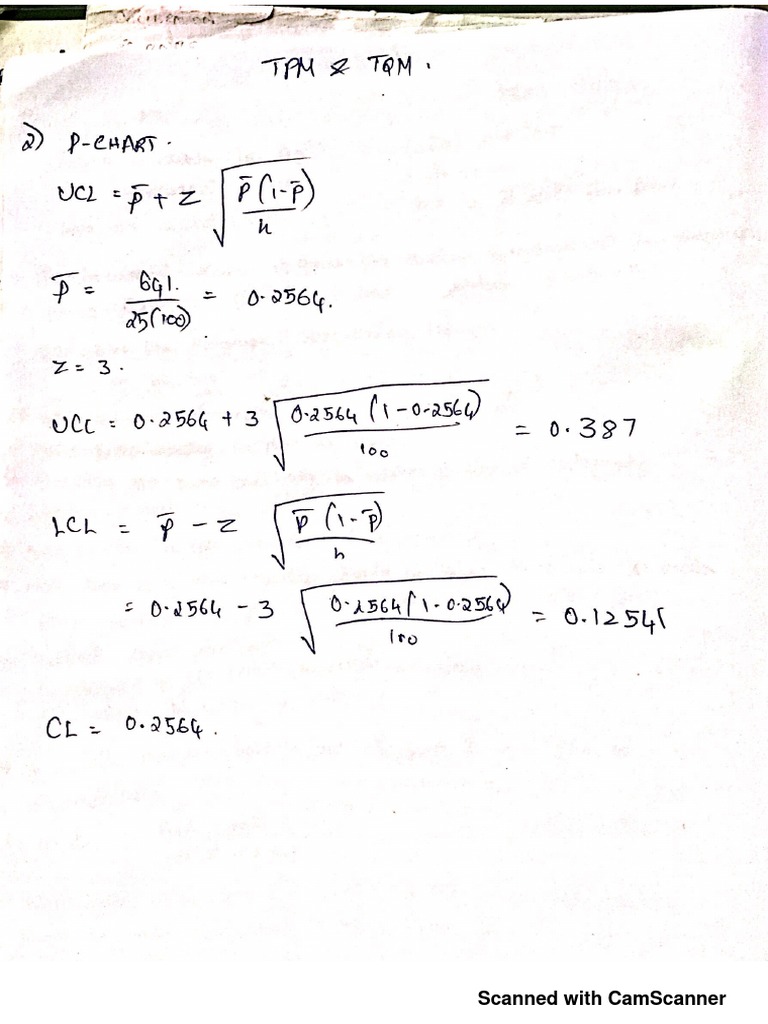 TPM & TQM.
2) P-CHART.
UCL = p̄ + Z √(p̄(1-p̄)/n)
p̄ = 641./25(100) = 0.2564.
Z = 3.
UCL = 0.2564 + 3 √(0.2564(1-0.2564)/100) = 0.387
LCL = p̄ - Z √(p̄(1-p̄)/n)
= 0.2564 - 3 √(0.2564(1-0.2564)/100) = 0.12541
CL = 0.2564.
Scanned with CamScanner